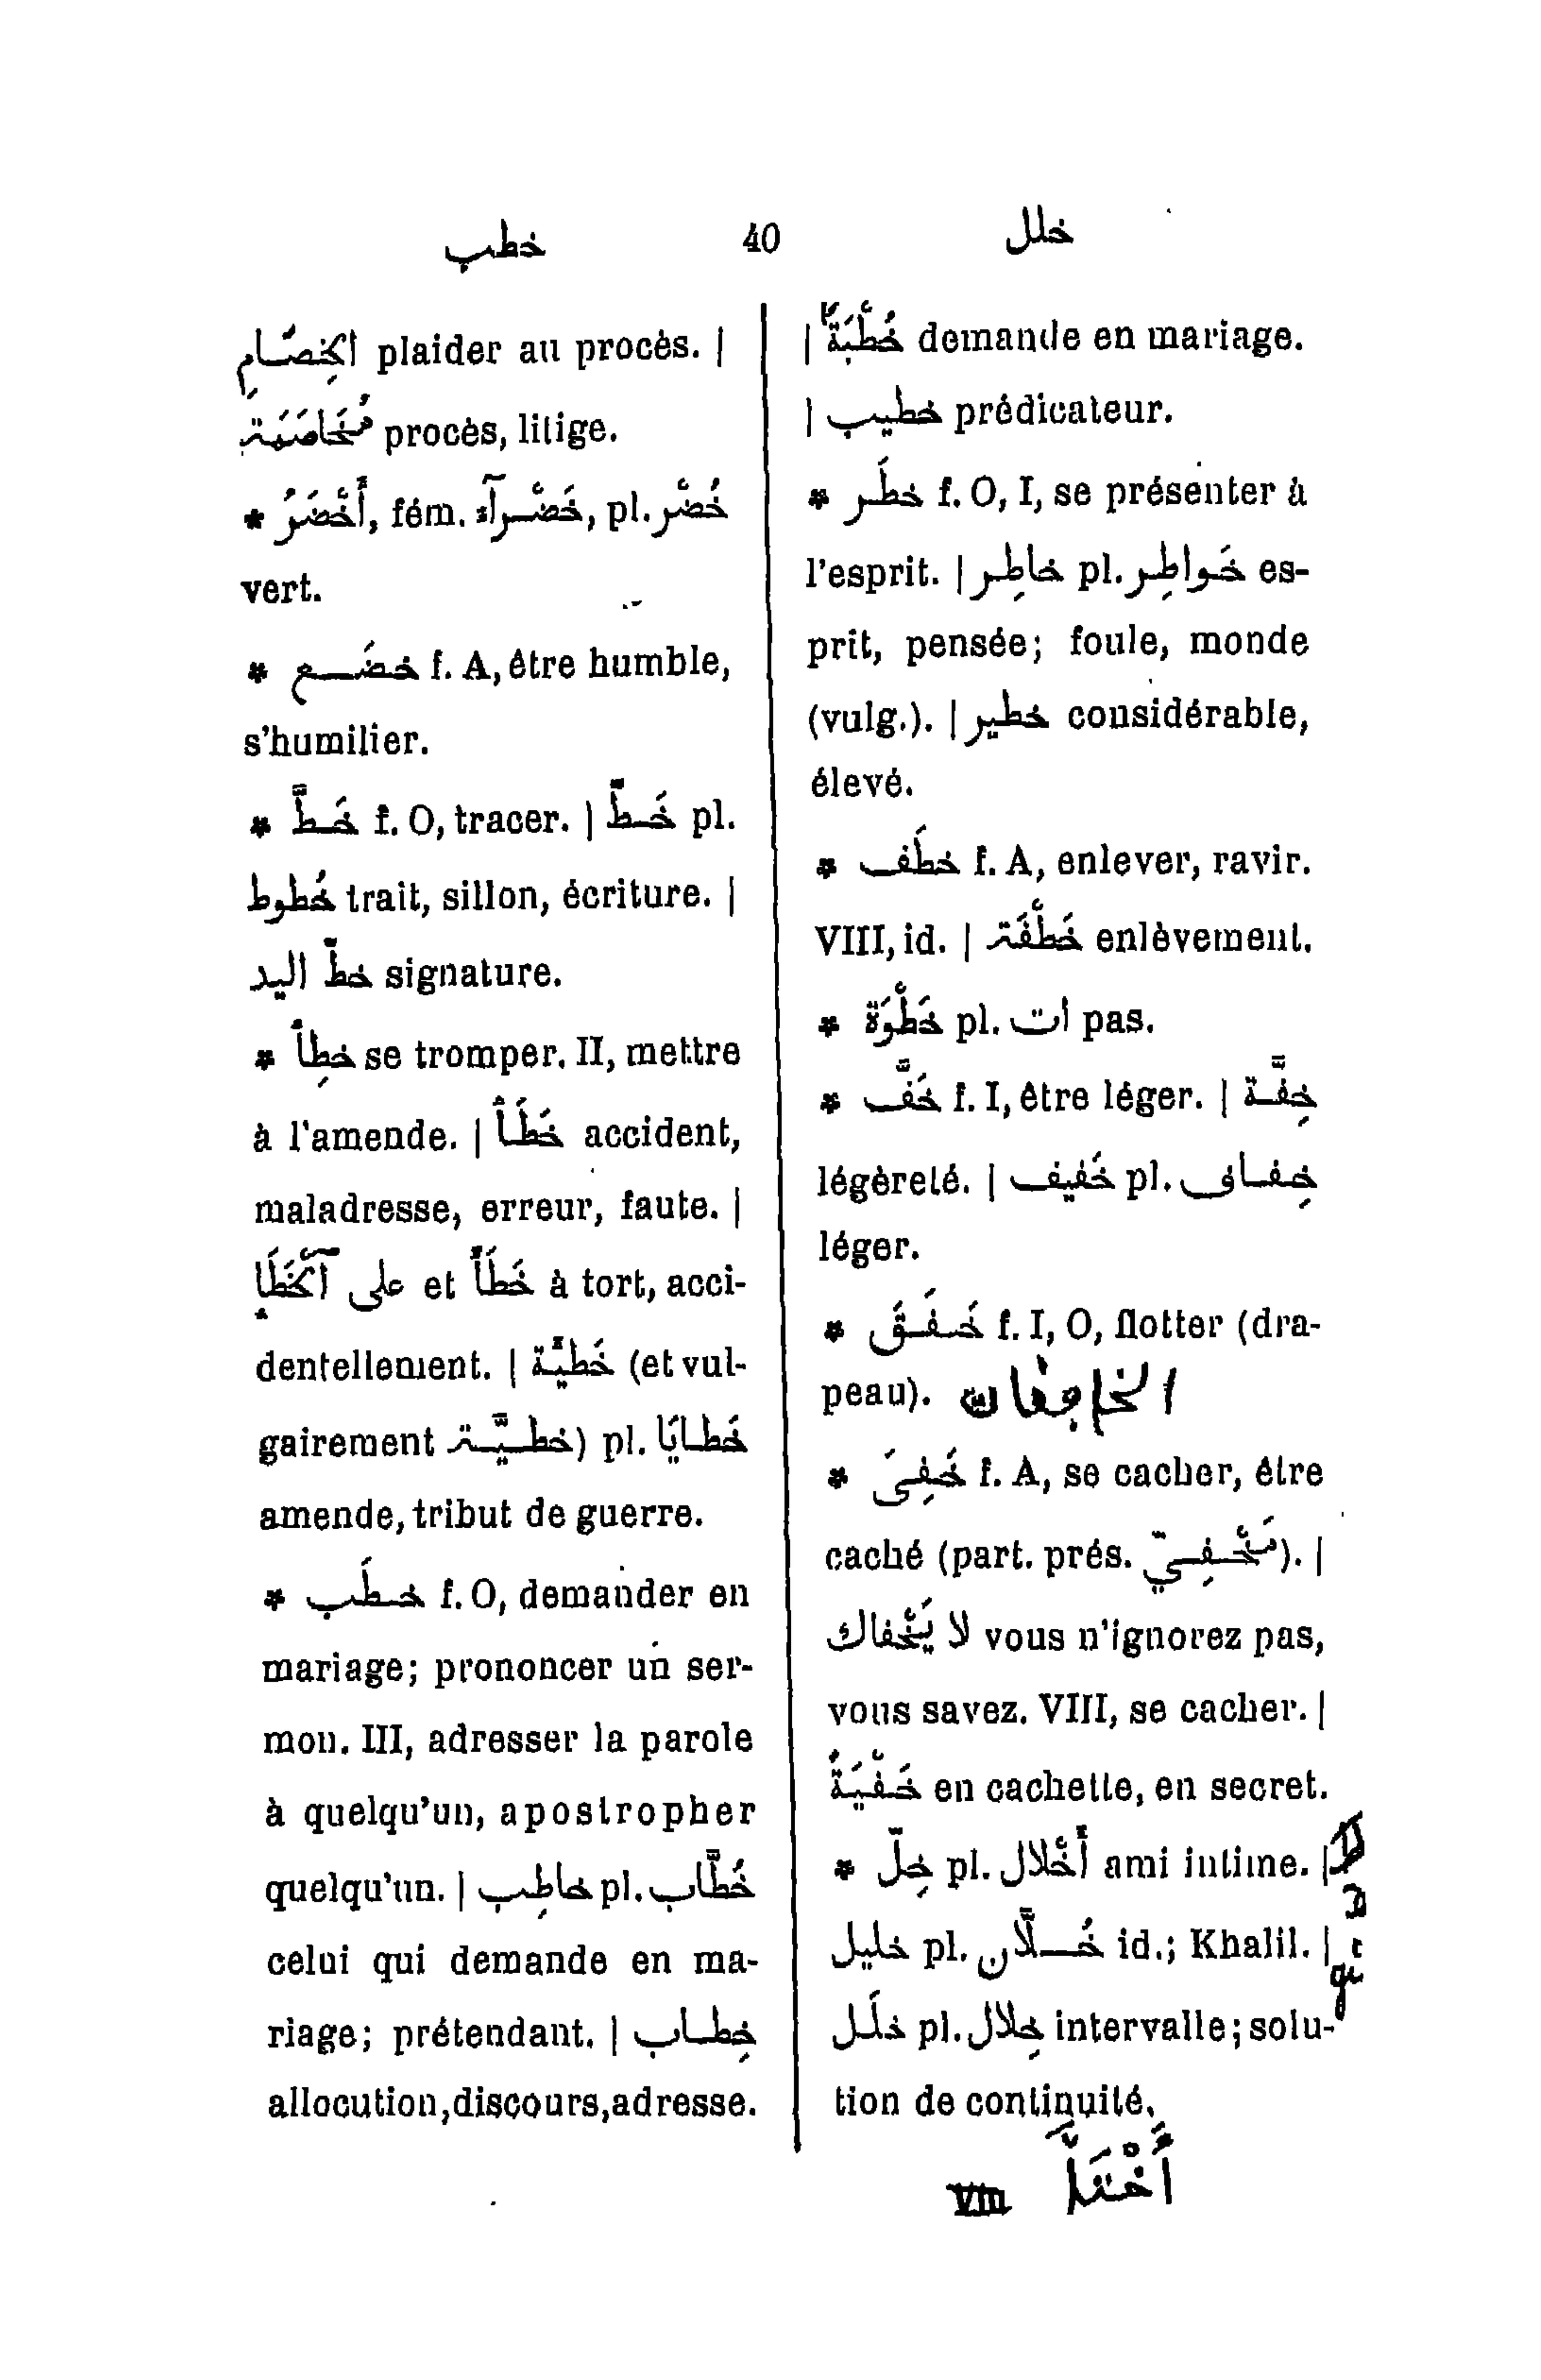 خطب 40 خلل
اكِخصَّام plaider au procès. |
مُخَاصَمَة procès, litige.
* أَخْضَرُ, fém. خَضْرآء, pl. خُضْر
vert.
* خضَع f. A, être humble,
s'humilier.
* خَطَّ f. O, tracer. | خَطّ pl.
خُطوط trait, sillon, écriture. |
خطّ اليد signature.
* خطِأ se tromper. II, mettre
à l'amende. | خَطَأ accident,
maladresse, erreur, faute. |
على et خَطَأً à tort, acci-
dentellement. | خَطيَّة (et vul-
gairement خطيَّة) pl. خَطايَا
amende, tribut de guerre.
* خطَب f. O, demander en
mariage; prononcer un ser-
mon. III, adresser la parole
à quelqu'un, apostropher
quelqu'un. | خاطِب pl. خُطَّاب
celui qui demande en ma-
riage; prétendant. | خِطاب
allocution, discours, adresse.
| خُطْبَةٌ demande en mariage.
| خطيب prédicateur.
* خطَر f. O, I, se présenter à
l'esprit. | خاطِر pl. خَواطِر es-
prit, pensée; foule, monde
(vulg.). | خطير considérable,
élevé.
* خطَف f. A, enlever, ravir.
VIII, id. | خَطْفَة enlèvement.
* خَطْوَة pl. ات pas.
* خَفَّ f. I, être léger. | خِفَّة
légèreté. | خَفيف pl. خِفاف
léger.
* خَفَقَ f. I, O, flotter (dra-
peau). الخافقان
* خَفِىَ f. A, se cacher, être
caché (part. prés. مَخْفِيّ). |
لا يَخْفاك vous n'ignorez pas,
vous savez. VIII, se cacher. |
خَفْيَةً en cachette, en secret.
* خِلّ pl. أَخْلال ami intime. |
خليل pl. خُلّان id.; Khalil. |
خلَل pl. خِلال intervalle; solu-
tion de continuité.
VIII